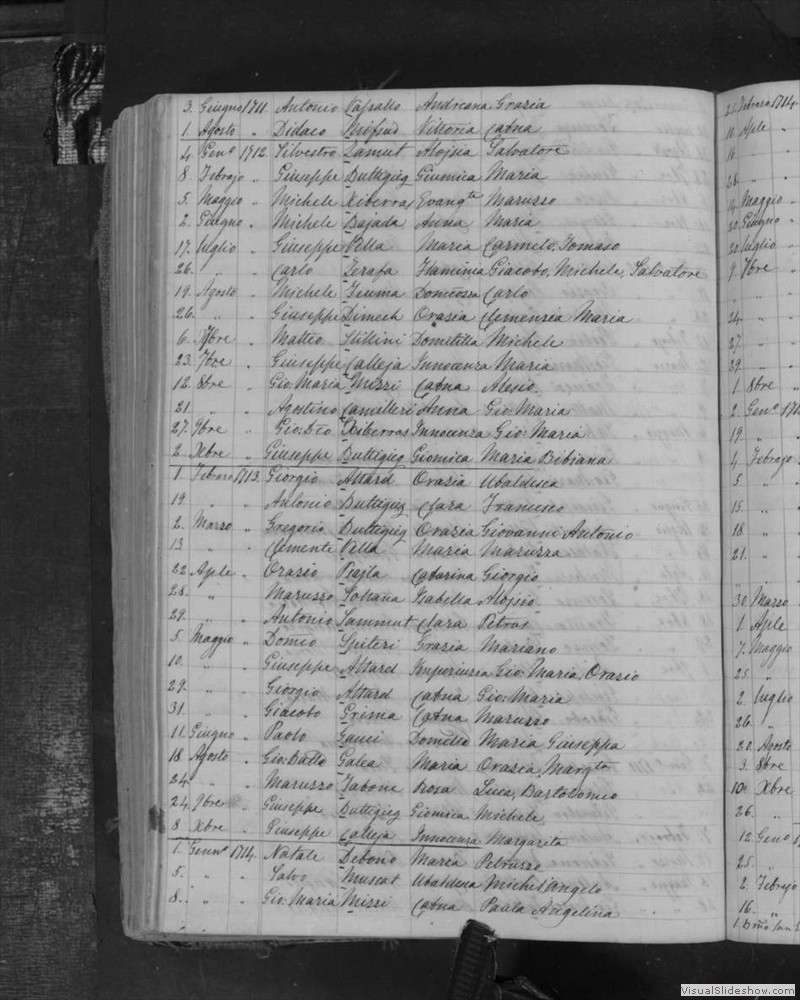 3. Giugno 1711. Antonio Vassallo Andreana Grazia
1. Agosto " Didaco Mifsud Vittoria Catna
4. Genº 1712. Silvestro Zamut Alojsia Salvatore
8. Febrajo " Giuseppe Buttigieg Giomica Maria
5. Maggio " Michele Xiberras Evangta Marusso
2. Giugno " Michele Bajada Anna Maria
17. Luglio " Giuseppe Vella Maria Carmelo, Tomaso
26. " " Carlo Zerafa Flaminia Giacobo, Michele, Salvatore
19. Agosto " Michele Teuma Carlo
26. " " Giuseppe Dimech Orasia Clemensia Maria
6. 7bre " Matteo Domitilla Michele
23. 7bre " Giuseppe Calleja Innocenza Maria
12. 8bre " Gio: Maria Missi Catna Alosio
21. " " Agostino Camilleri Anna Gio: Maria
27. 9bre " Xiberras Innocenza Gio: Maria
2. Xbre " Giuseppe Buttigieg Giomica Maria Bibiana
1. Febraro 1713. Giorgio Attard Orasia Ubaldesca
19. " " Antonio Buttigieg Clara Francesco
2. Marso " Gregorio Buttigieg Orasia Giovanni Antonio
13 " " Clemente Vella Maria Maruzza
22. Aple " Orasio Psajla Catarina Giorgio
28. " " Marusso Isabella Alojsio
29. " " Antonio Sammut Clara Petrus
5. Maggio " Domco Spiteri Grazia Mariano
10. " " Giuseppe Attard Imperiusia Gio: Maria, Orasio
29. " " Giorgio Attard Catna Gio: Maria
31. " " Giacobo Grima Catna Marusso
11. Giugno " Paolo Gauci Maria Giuseppa
18. Agosto " Gio: Batto Galea Maria Orasia, Margta
24. " " Marusso Tabone Rosa Luca, Bartolomeo
24. 9bre " Giuseppe Buttigieg Giomica Michele
8. Xbre " Giuseppe Calleja Innocenza Margarita
1. Gennº 1714. Natale Debono Maria Petrusso
5. " " Salvo Muscat Ubaldesca Michel'angelo
8. " " Gio: Maria Missi Catna Paula Angelina
21. Febraro 1714.
10. Aple "
18. "
28. "
14. Maggio "
20. Giugno "
20. Luglio "
9. 7bre "
" "
24. "
27. "
29. "
1. 8bre "
2. Genº
19. "
4. Febrajo
5. "
15. "
18. "
21. "
30. Marso
1. Aple
7. Maggio
25. "
2. Luglio
26. "
22. Agosto
3. 8bre
10. Xbre
26. "
12. Genº
25. "
2. Febrajo
16. "
VisualSlideshow.com